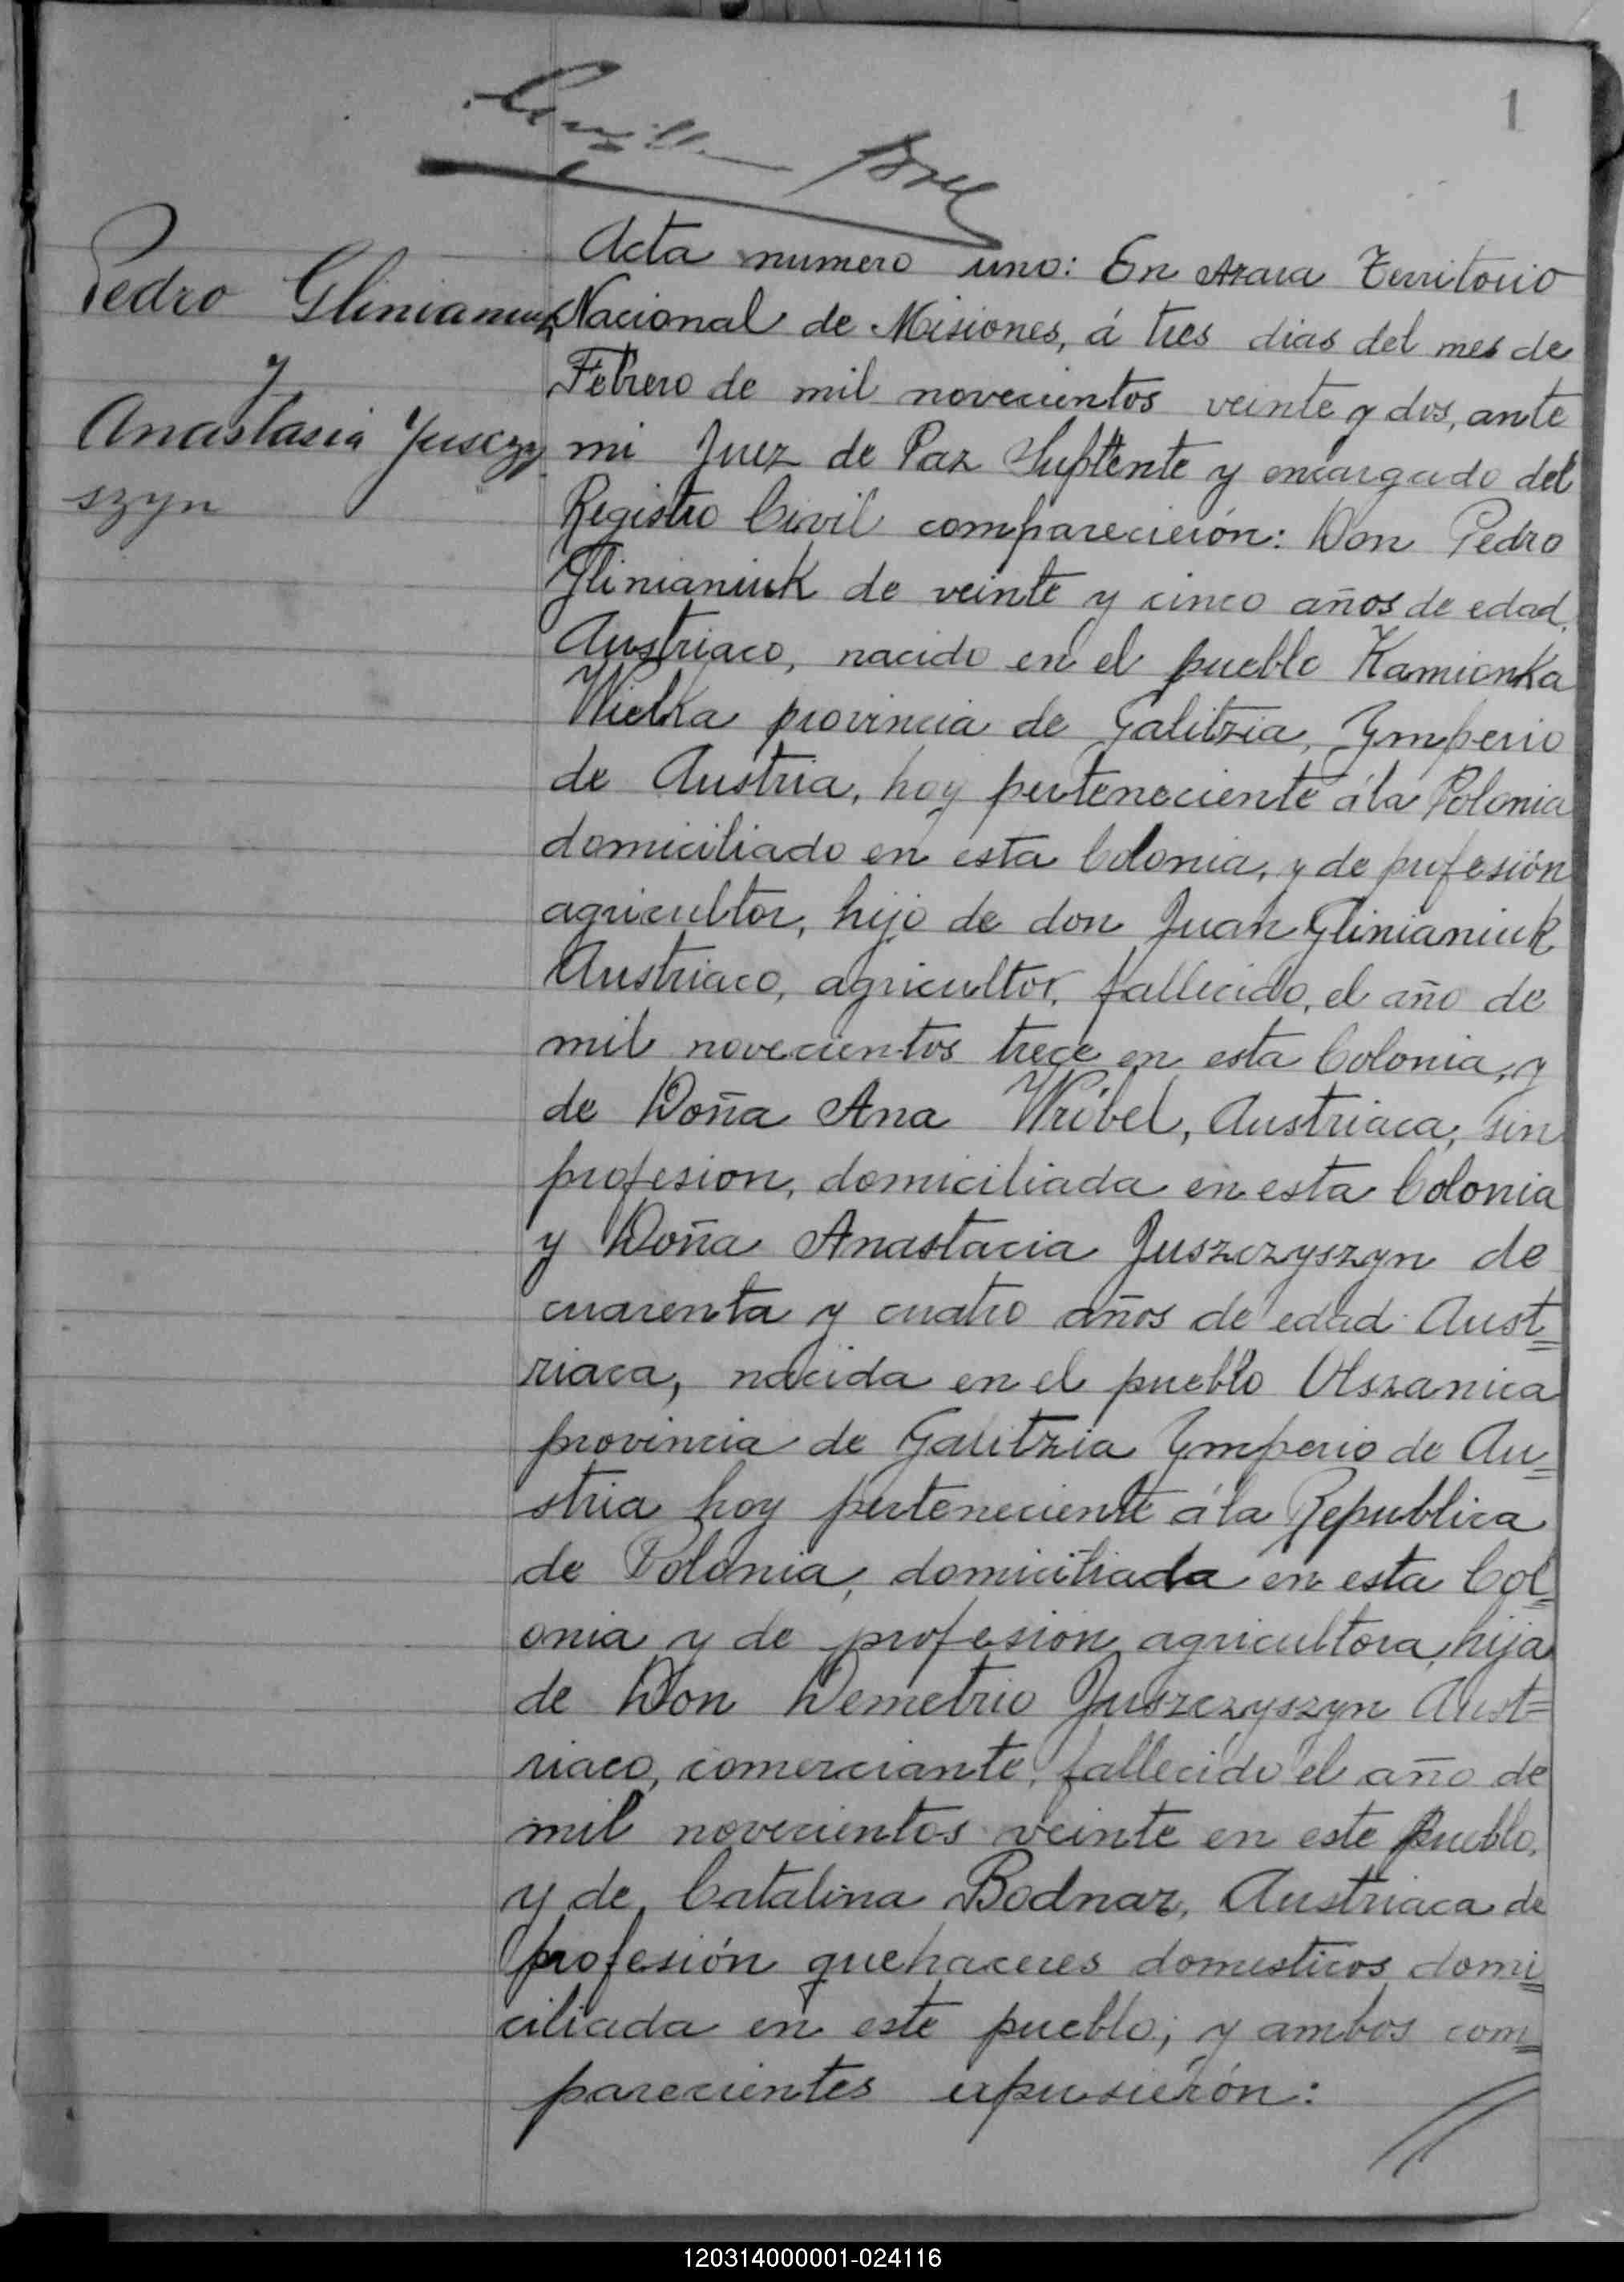 1
Pedro Glinianiuk
y
Anastasia Jusczy
szyn
Acta numero uno: En Azara Territorio
Nacional de Misiones, á tres dias del mes de
Febrero de mil novecientos veinte y dos, ante
mi Juez de Paz Suplente y encargado del
Registro Civil comparecieión: Don Pedro
Glinianiuk de veinte y cinco años de edad,
Austriaco, nacido en el pueblo Kamionka
Wielka provincia de Galitzia, Ymperio
de Austria, hoy perteneciente á la Polonia
domiciliado en esta Colonia, y de profesión
agricultor, hijo de don Juan Glinianiuk
Austriaco, agricultor, fallecido, el año de
mil novecientos trece en esta Colonia, y
de Doña Ana Wróbel, Austriaca, sin
profesion, domiciliada en esta Colonia
y Doña Anastacia Juszczyszyn de
cuarenta y cuatro años de edad Aust=
riaca, nacida en el pueblo Olszanica
provincia de Galitzia Ymperio de Au=
stria hoy perteneciente á la Republica
de Polonia, domiciliada en esta Col=
onia y de profesion agricultora, hija
de Don Demetrio Juszczyszyn Aust=
riaco, comerciante, fallecido el año de
mil novecientos veinte en este Pueblo,
y de Catalina Bodnar, Austriaca de
profesión quehaceres domesticos domi=
ciliada en este pueblo; y ambos com=
parecientes expusierón:
120314000001-024116